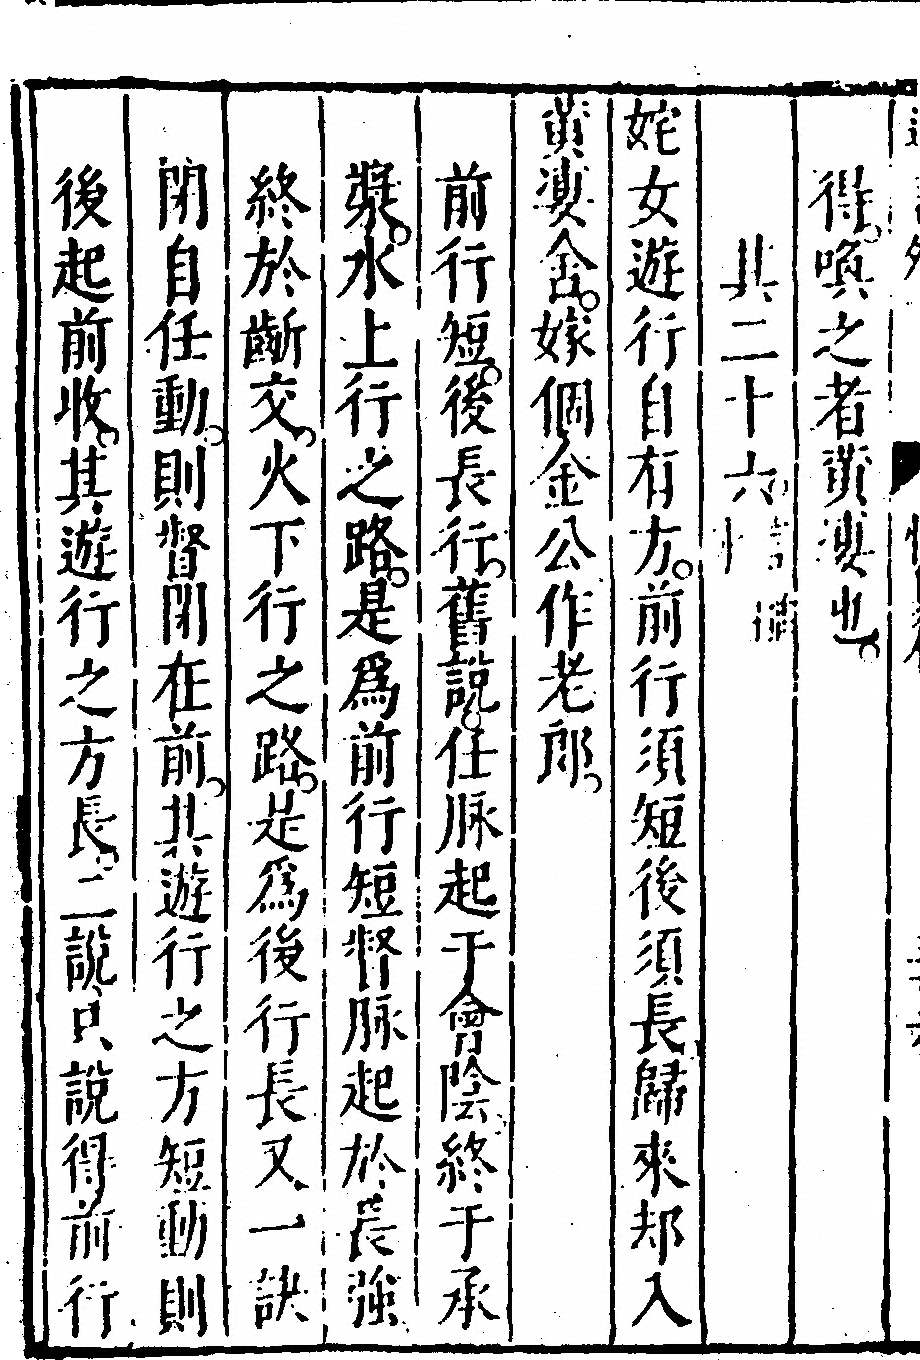 得喚之者黃婆也
其二十六
姹女遊行自有方前行須短後須長歸來却入
黃婆舍嫁個金公作老郎
前行短後長行舊說任脉起于會陰終于承
漿水上行之路是爲前行短督脉起於長強
終於齗交火下行之路是爲後行長又一訣
閉自任動則督閉在前其遊行之方短動則
後起前收其遊行之方長二說只說得前行